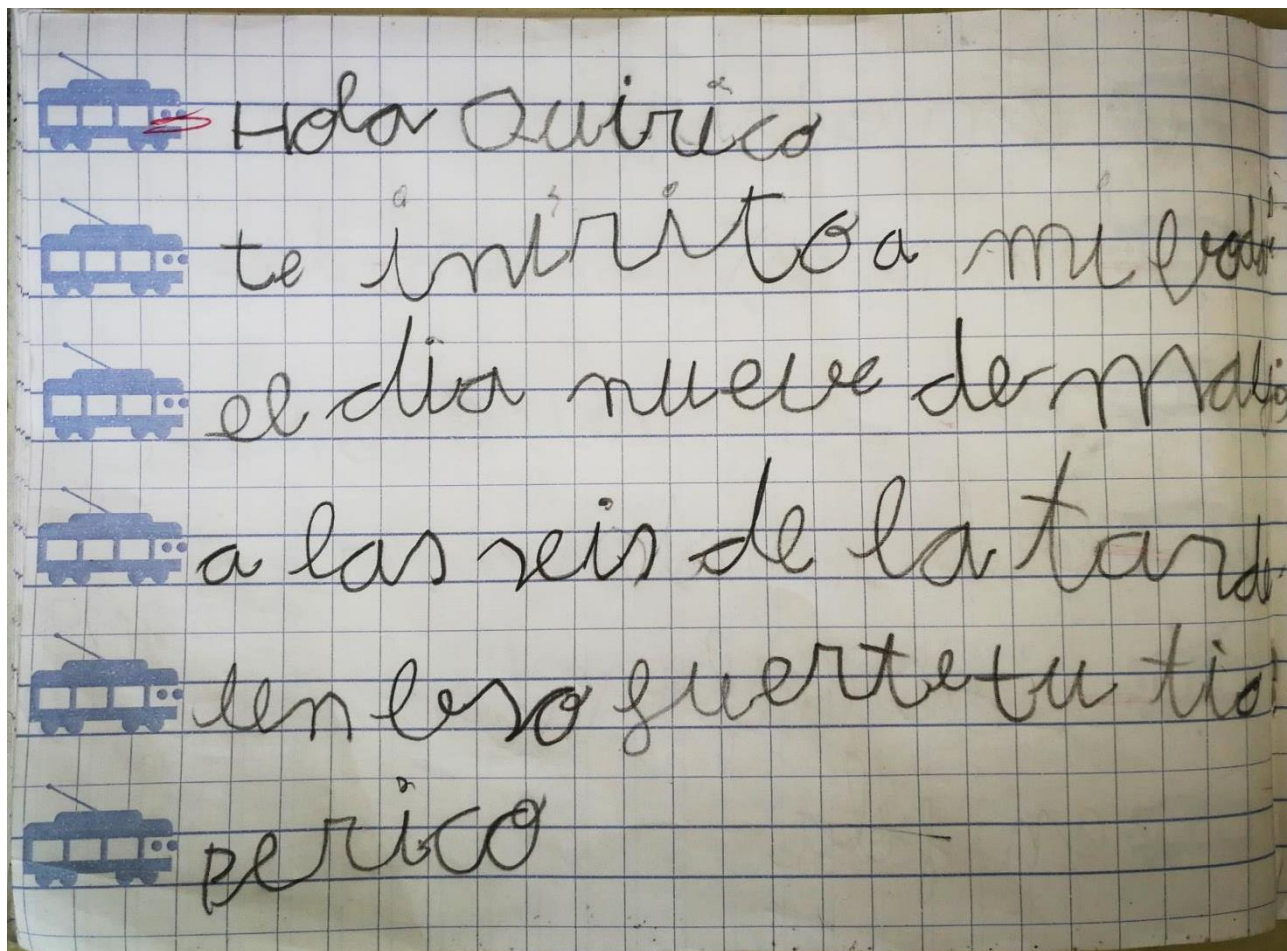 Hola Quirico
te invito a mi boda
el dia nueve de mayo
a las seis de la tarde
un beso fuerte tu tio
perico